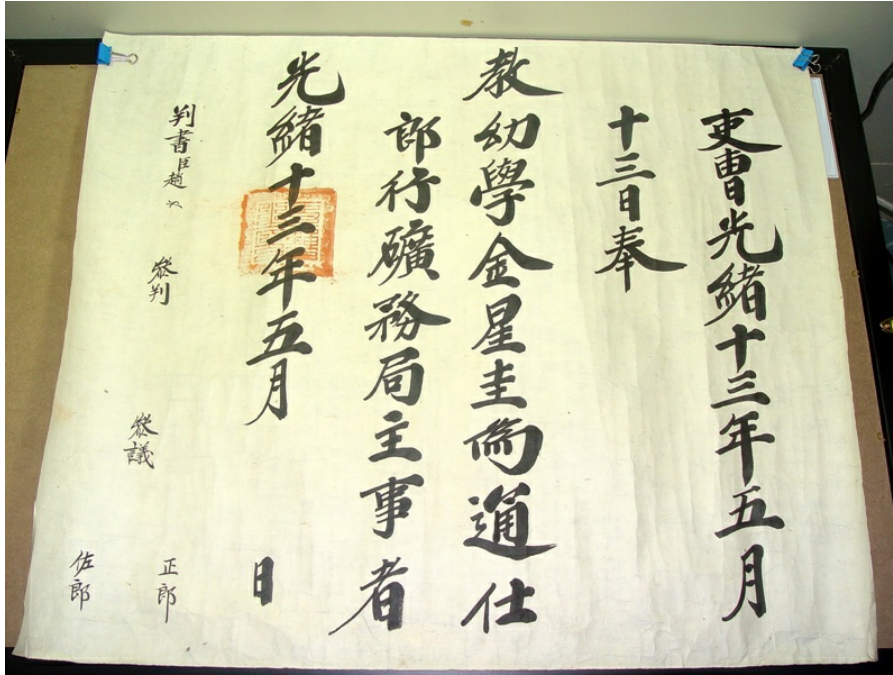 吏曹光緒十三年五月
十三日奉
教幼學金星圭爲通仕
郎行礦務局主事者
光緒十三年五月 日
判書臣趙
叅判
叅議
正郎
佐郎